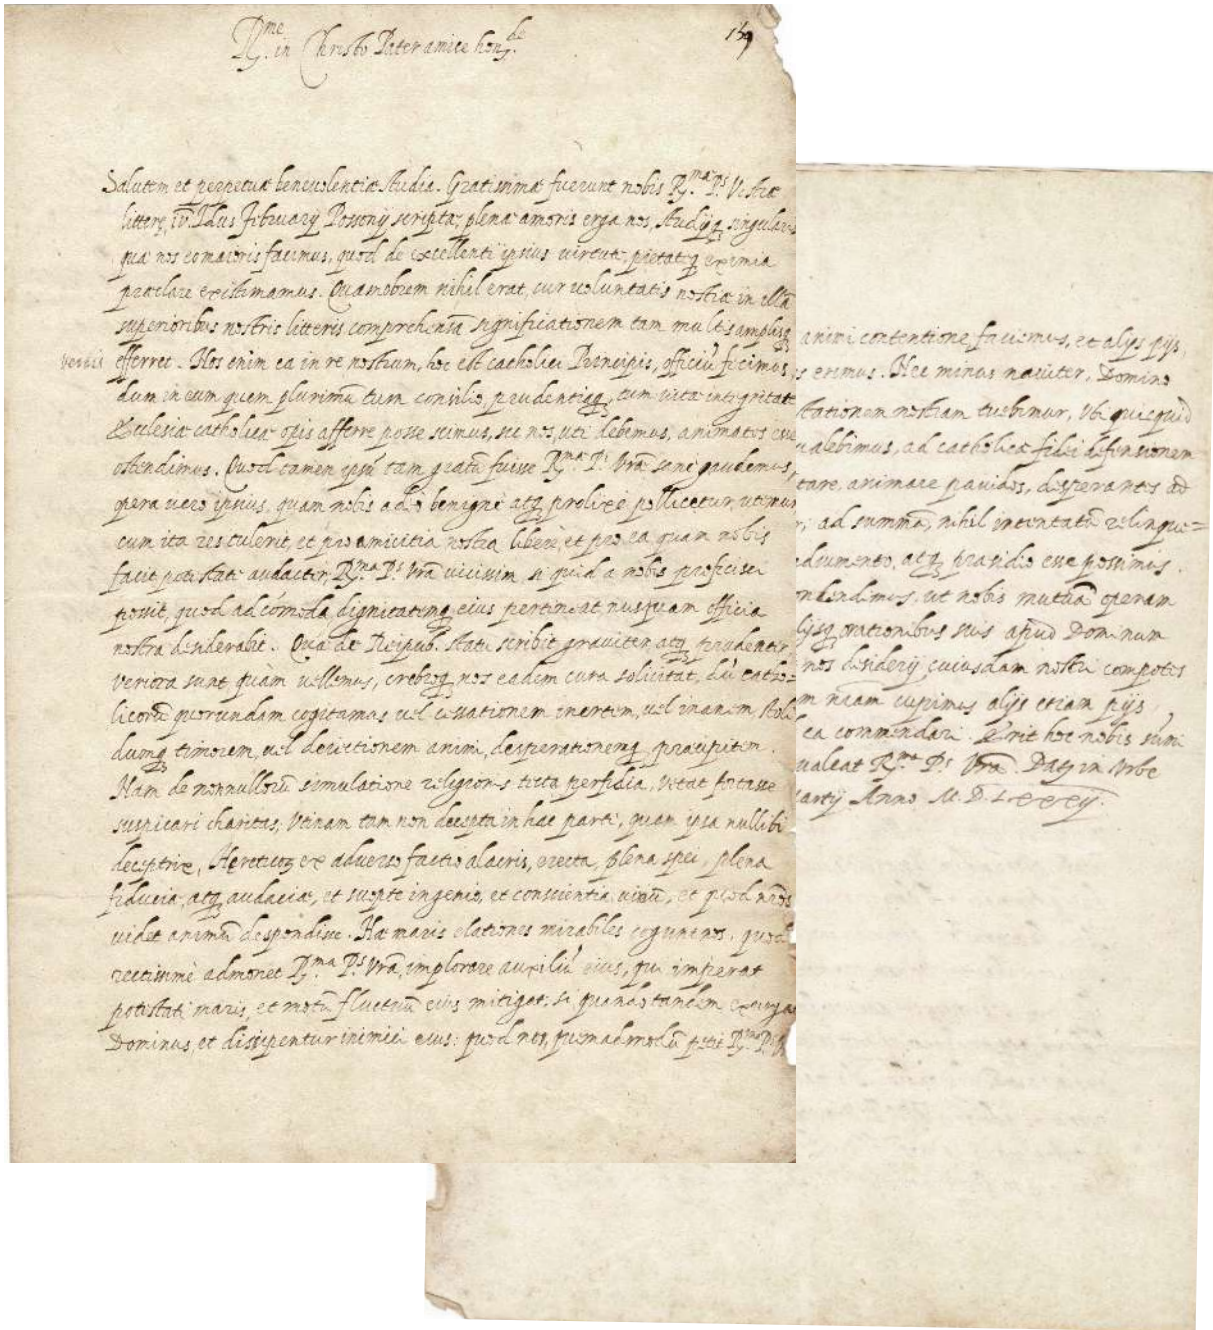 R.me in Christo Pater amice hon.de
159
Salutem et perpetuæ benevolentiæ studia. Gratissimæ fuerunt nobis R.mæ P.s Vestræ
litterę, iv. Idus Februarij Posonij scriptæ, plenæ amoris erga nos, studijq singularis
quæ nos eo maioris facimus, quod de excellenti ipsius virtute, pietateq eximia
præclare existimamus. Quamobrem nihil erat, cur voluntatis nostræ in illā
superioribus nostris litteris comprehensā significationem tam multis amplisq
verbis efferret. Nos enim ea in re nostrum, hoc est catholici Principis, officiū fecimus,
dum in eum quem plurimū tum consilio, prudentiaq, tum vitæ integritate
Ecclesiæ catholicæ opis afferre posse scimus, sic nos, uti debemus, animatos esse
ostendimus. Quod tamen ipsū tam gratū fuisse R.mæ P.i Vræ sane gaudemus,
opera vero ipsius, quam nobis adeo benigne atq prolixe pollicetur, utimur
cum ita res tulerit, et pro amicitia nostra libere, et pro ea quam nobis
facit potestate audacter, R.ma P.s Vrā vicissim, si quid a nobis proficisci
possit, quod ad cómoda dignitatemq eius pertineat nusquam officia
nostra desiderabit. Quæ de Reipub. statu scribit graviter, atq prudenter
veriora sunt quàm vellemus, crebroq nos eadem cura solicitat, dū catho=
licorū quorundam cogitamus vel cessationem inertem, vel inanem stoli
dumq timorem, vel deiectionem animi, desperationemq præcipitem.
Nam de nonnullorū simulatione religionis tecta perfidia, vetat fortasse
suspicari charitas, utinam tam non decepta in hac parte, quam ipsa nullibi
deceptrix, Hęreticoꝝ ex adverso factio alacris, erecta, plena spei, plena
fiduciæ, atq audaciæ, et suopte ingenio, et conscientia viriū, et quod nr̄os
videt animū despondisse. Hæ maris elationes mirabiles cogunt nos, quod
rectissimè admonet R.ma P.s Vrā, implorare auxiliū eius, qui imperat
potestati maris, et motū fluctuū eius mitigat: si quando tandem exurgat
Dominus, et dissipentur inimici eius: quod nos, quemadmodū petit R.ma P.s
animi contentione faciemus, et alijs pijs,
erimus. Nec minus naviter, Domino
stationem nostram tuebimur, ubi quicquid
valebimus, ad catholicæ fidei defensionem
animare pavidos, desperantes ad
ad summā, nihil intentatū relinque=
atq præsidio esse possimus.
ut nobis mutuā operam
orationibus suis apud Dominum
nos desiderij cuiusdam nostri compotes
nr̄am cupimus alijs etiam pijs
ea commendari. Erit hoc nobis sum̄e
valeat R.ma P.s Vrā. Datę in Urbe
Martij Anno M.D.LXXXIJ.